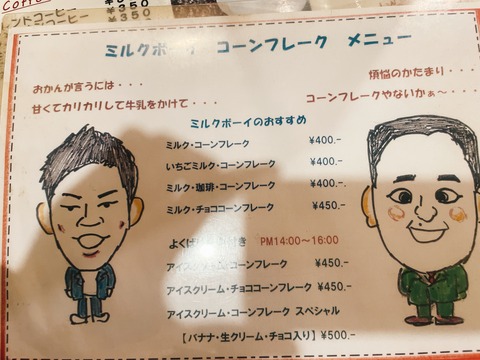 ¥350
ンドコーヒー ¥350
ミルクボーイ コーンフレーク メニュー
おかんが言うには・・・
甘くてカリカリして牛乳をかけて・・・
煩悩のかたまり・・・
コーンフレークやないかぁ～・・・
ミルクボーイのおすすめ
ミルク・コーンフレーク ¥400.-
いちごミルク・コーンフレーク ¥400.-
ミルク・珈琲・コーンフレーク ¥400.-
ミルク・チョココーンフレーク ¥450.-
よくば 付き PM14:00～16:00
アイスクリーム・コーンフレーク ¥450.-
アイスクリーム・チョココーンフレーク ¥450.-
アイスクリーム・コーンフレーク スペシャル
【バナナ・生クリーム・チョコ入り】 ¥500.-